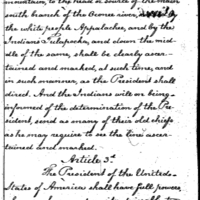 mountain, to the head or source of the main
south branch of the Oconee river, called by
the white people Appalachee, and by the
Indians Tulapocka, and down the mid-
dle of the same, shall be clearly ascer-
tained and marked, at such time, and
in such manner, as the President shall
direct. And the Indians will on being
informed of the determination of the Pre-
sident, send as many of their old chiefs
as he may require to see the line ascer-
tained and marked.
Article 3d
The President of the United
States of America shall have full powers,